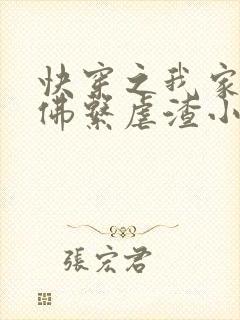 快穿之我家
佛繫虐渣小
張宏君